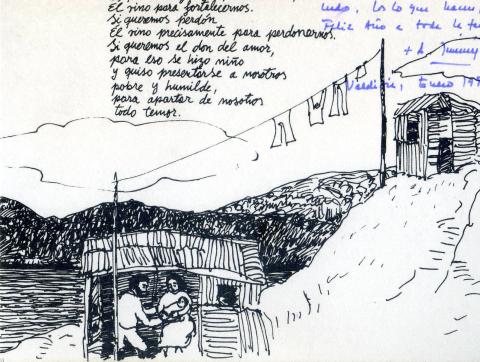 El vino para fortalecernos.
Si queremos perdón
El vino precisamente para perdonarnos.
Si queremos el don del amor,
para eso se hizo niño
y quiso presentarse a nosotros
pobre y humilde,
para apartar de nosotros
todo temor.
lo que hacen,
Feliz Año a toda la
Valdivia, Enero 199